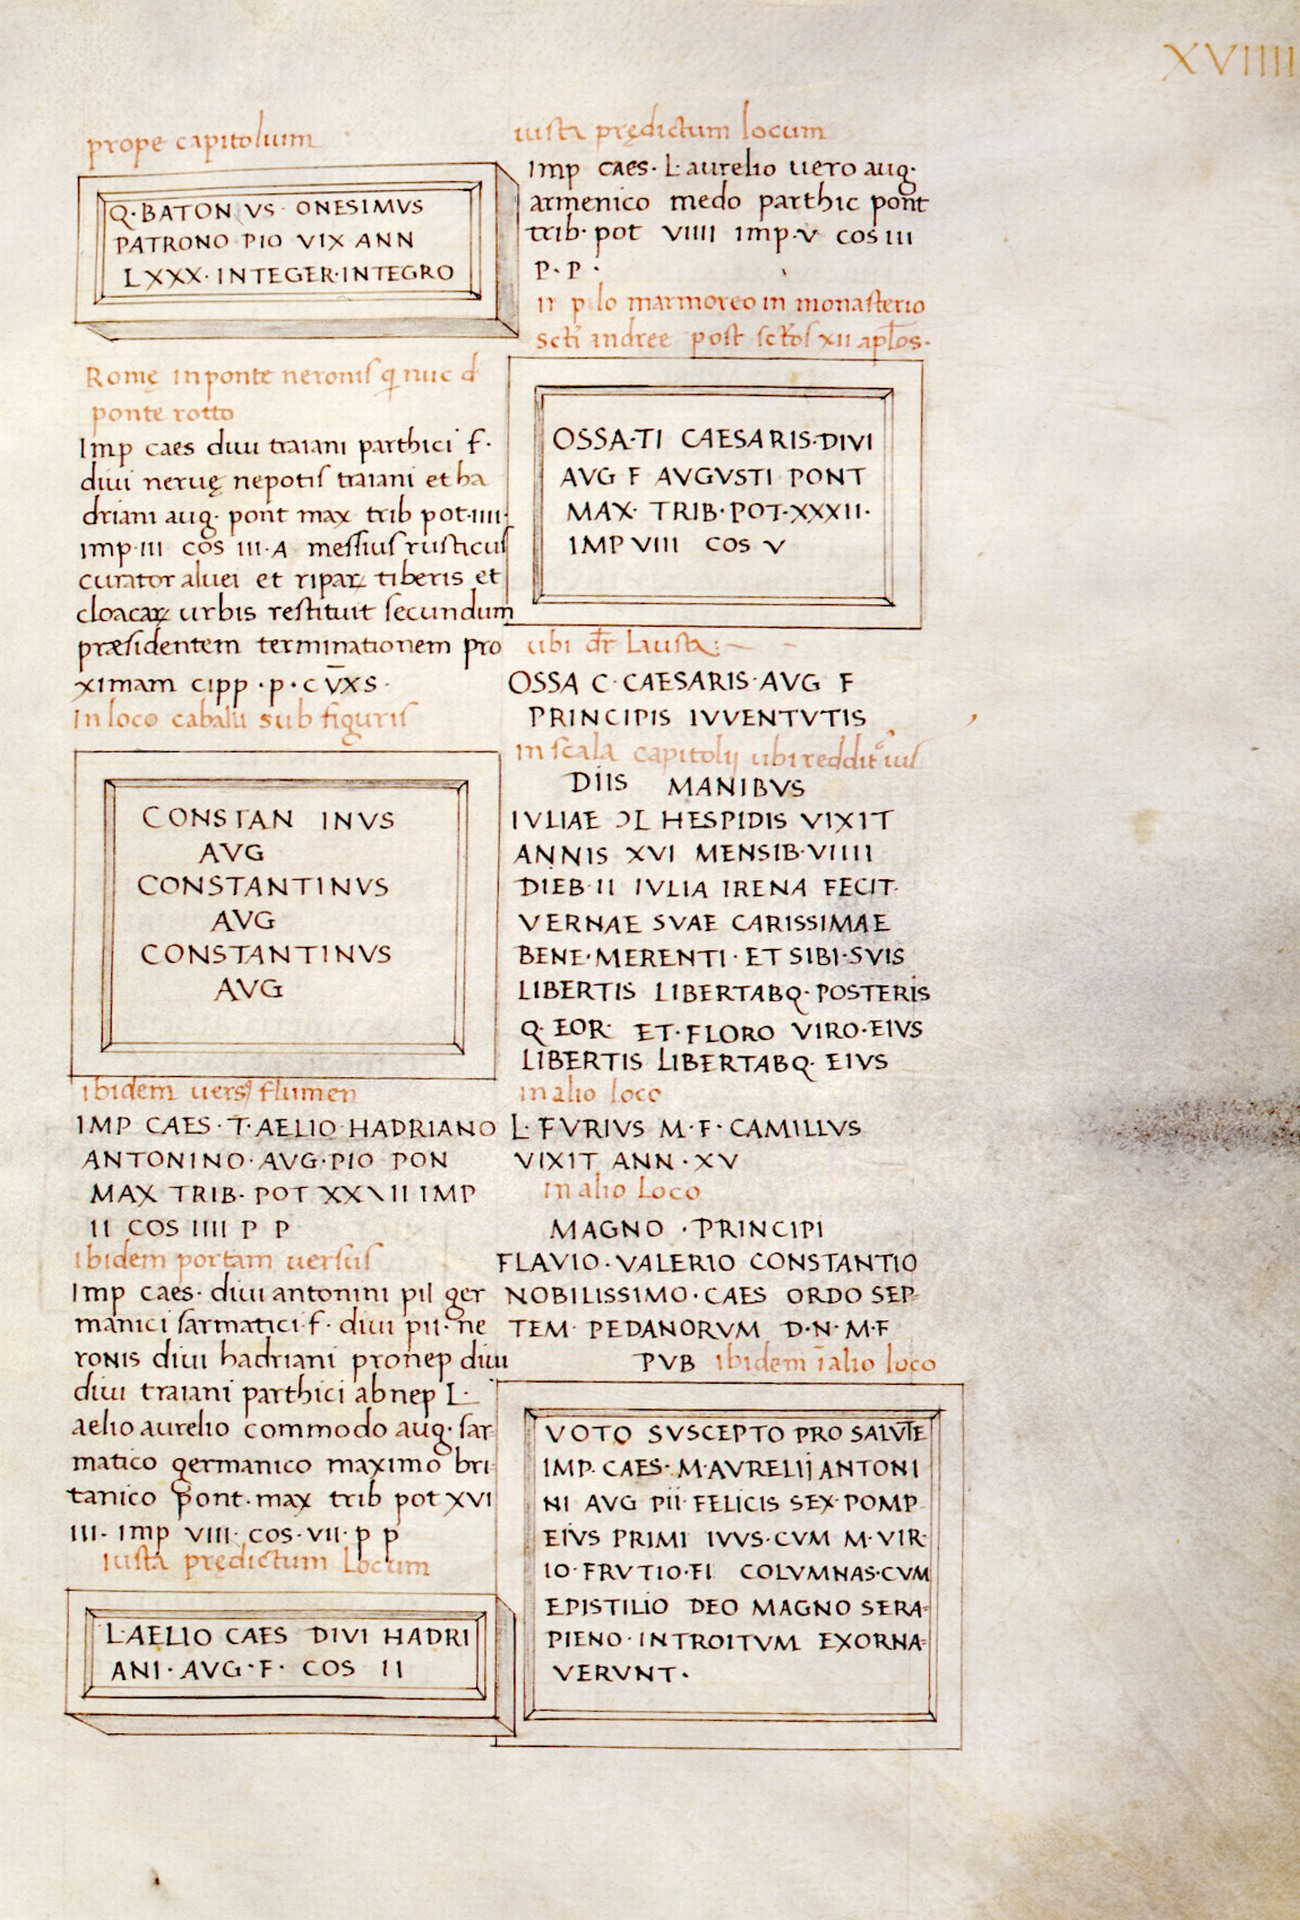 XVIIII
prope capitolium
Q·BATON VS · ONESIMVS
PATRONO PIO VIX ANN
LXXX· INTEGER·INTEGRO
Romę in ponte neronis q nuc d
ponte rotto
Imp caes diui traiani parthici f·
diui neruę nepotis traiani et ha
driani aug· pont max trib pot·IIII·
imp·III cos III·A messius rusticus
curator aluei et ripaꝝ tiberis et
cloacaꝝ urbis restituit secundum
præsidentem terminationem pro
ximam cipp ·p·cVXS·
In loco caballi sub figuris
CONSTAN INVS
AVG
CONSTANTINVS
AVG
CONSTANTINVS
AVG
ibidem uers flumen
IMP CAES·T·AELIO HADRIANO
ANTONINO·AVG·PIO PON
MAX TRIB· POT XXVII IMP
II COS IIII P P
ibidem portam uersus
Imp caes· diui antonini pii ger
manici sarmatici·f· diui pii· ne
ronis diui hadriani pronep diui
diui traiani parthici abnep L·
aelio aurelio commodo aug· sar
matico germanico maximo bri
tanico pont·max trib pot XVI
III· imp VIII· cos·VII·p p
iusta prędictum Locum
L·AELIO CAES DIVI HADRI
ANI·AVG·F· COS II
iusta prędictum locum
Imp caes·L·aurelio uero aug·
armenico medo parthic pont
trib·pot VIIII imp·V cos III
P·P·
p lo marmoreo in monasterio
scti andree post sctos XII aplos·
OSSA·TI CAESARIS·DIVI
AVG F AVGVSTI PONT
MAX· TRIB·POT·XXXII·
IMP VIII COS V
ubi dr Lausta:
OSSA C·CAESARIS·AVG F
PRINCIPIS IVVENTVTIS
in scala capitolij ubi reddit ius
DIIS MANIBVS
IVLIAE ƆL HESPIDIS VIXIT
ANNIS XVI MENSIB·VIIII
DIEB·II IVLIA IRENA FECIT·
VERNAE SVAE CARISSIMAE
BENE·MERENTI·ET SIBI·SVIS
LIBERTIS LIBERTABQ·POSTERIS
Q·EOR· ET·FLORO VIRO·EIVS
LIBERTIS LIBERTABQ· EIVS
in alio loco
L·FVRIVS M·F·CAMILLVS
VIXIT ANN·XV
in alio Loco
MAGNO ·PRINCIPI
FLAVIO·VALERIO CONSTANTIO
NOBILISSIMO·CAES ORDO SEP
TEM· PEDANORVM D·N·M·F
PVB ibidem ī alio loco
VOTO SVSCEPTO PRO SALVTE
IMP·CAES·M·AVRELIJ ANTONI
NI AVG PII·FELICIS SEX·POMP
EIVS PRIMI IVVS·CVM M·VIR·
IO·FRVTIO·FI COLVMNAS·CVM
EPISTILIO DEO MAGNO SERA
PIENO·INTROITVM EXORNA
VERVNT·